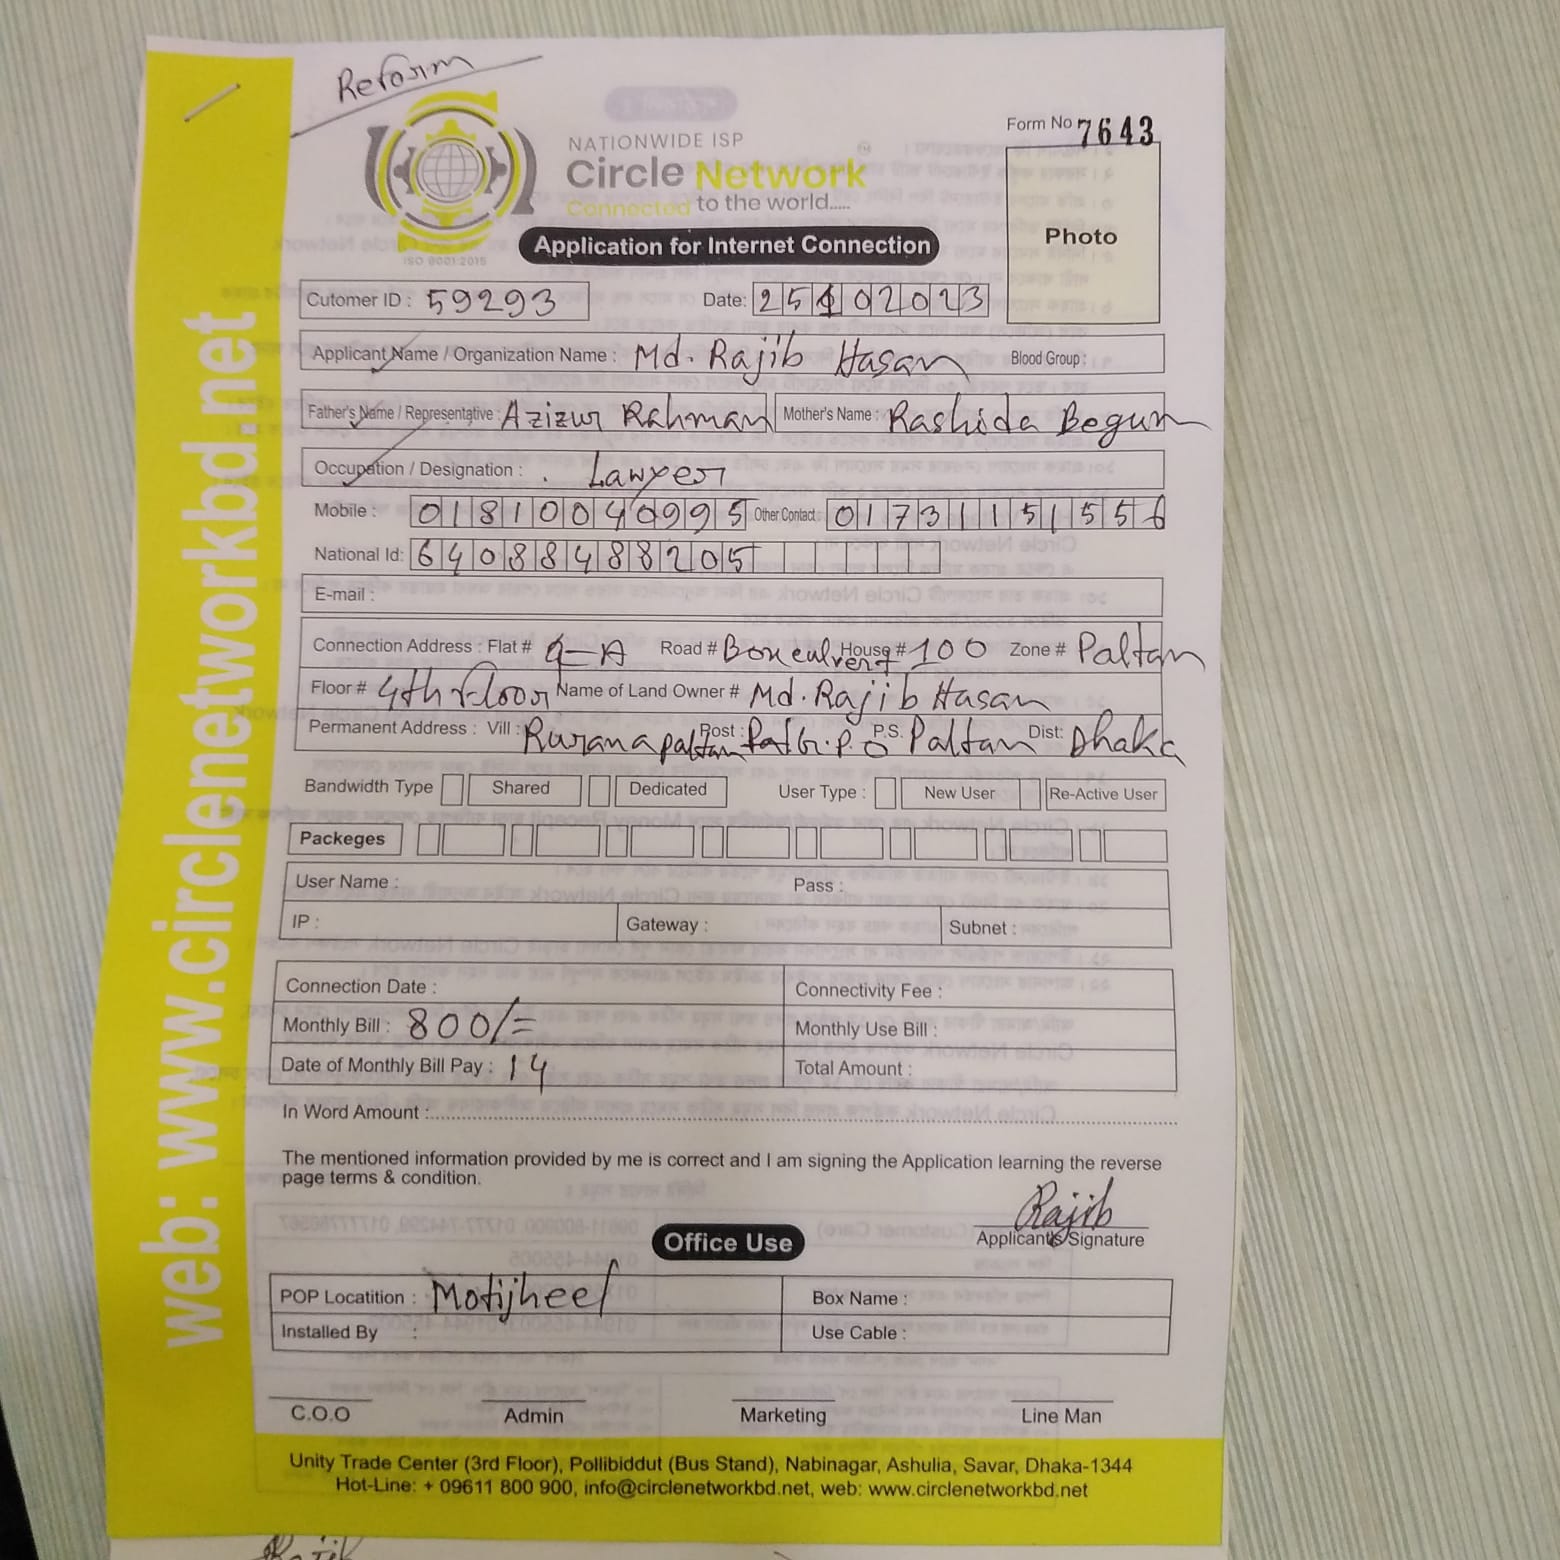 Reform
Form No 7643
NATIONWIDE ISP
Circle Network
Connected to the world.....
ISO 9001:2015
Application for Internet Connection
Photo
Cutomer ID : 59293 Date: 25102023
Applicant Name / Organization Name : Md. Rajib Hasan Blood Group :
Father's Name / Representative : Azizur Rahman Mother's Name : Rashida Begum
Occupation / Designation : Lawyer
Mobile : 01810040995 Other Contact : 01731151556
National Id: 64088488205
E-mail :
Connection Address : Flat # 4-A Road # Boxculvert House # 100 Zone # Paltan
Floor # 4th Floor Name of Land Owner # Md. Rajib Hasan
Permanent Address : Vill : Puranapaltan Post : G.P.O P.S. Paltan Dist: Dhaka
Bandwidth Type Shared Dedicated User Type : New User Re-Active User
Packeges
User Name : Pass :
IP : Gateway : Subnet :
Connection Date : Connectivity Fee :
Monthly Bill : 800/= Monthly Use Bill :
Date of Monthly Bill Pay : 14 Total Amount :
In Word Amount :
The mentioned information provided by me is correct and I am signing the Application learning the reverse
page terms & condition.
Rajib
Applicant's Signature
Office Use
POP Locatition : Motijheel Box Name :
Installed By : Use Cable :
C.O.O Admin Marketing Line Man
Unity Trade Center (3rd Floor), Pollibiddut (Bus Stand), Nabinagar, Ashulia, Savar, Dhaka-1344
Hot-Line: + 09611 800 900, info@circlenetworkbd.net, web: www.circlenetworkbd.net
web: www.circlenetworkbd.net